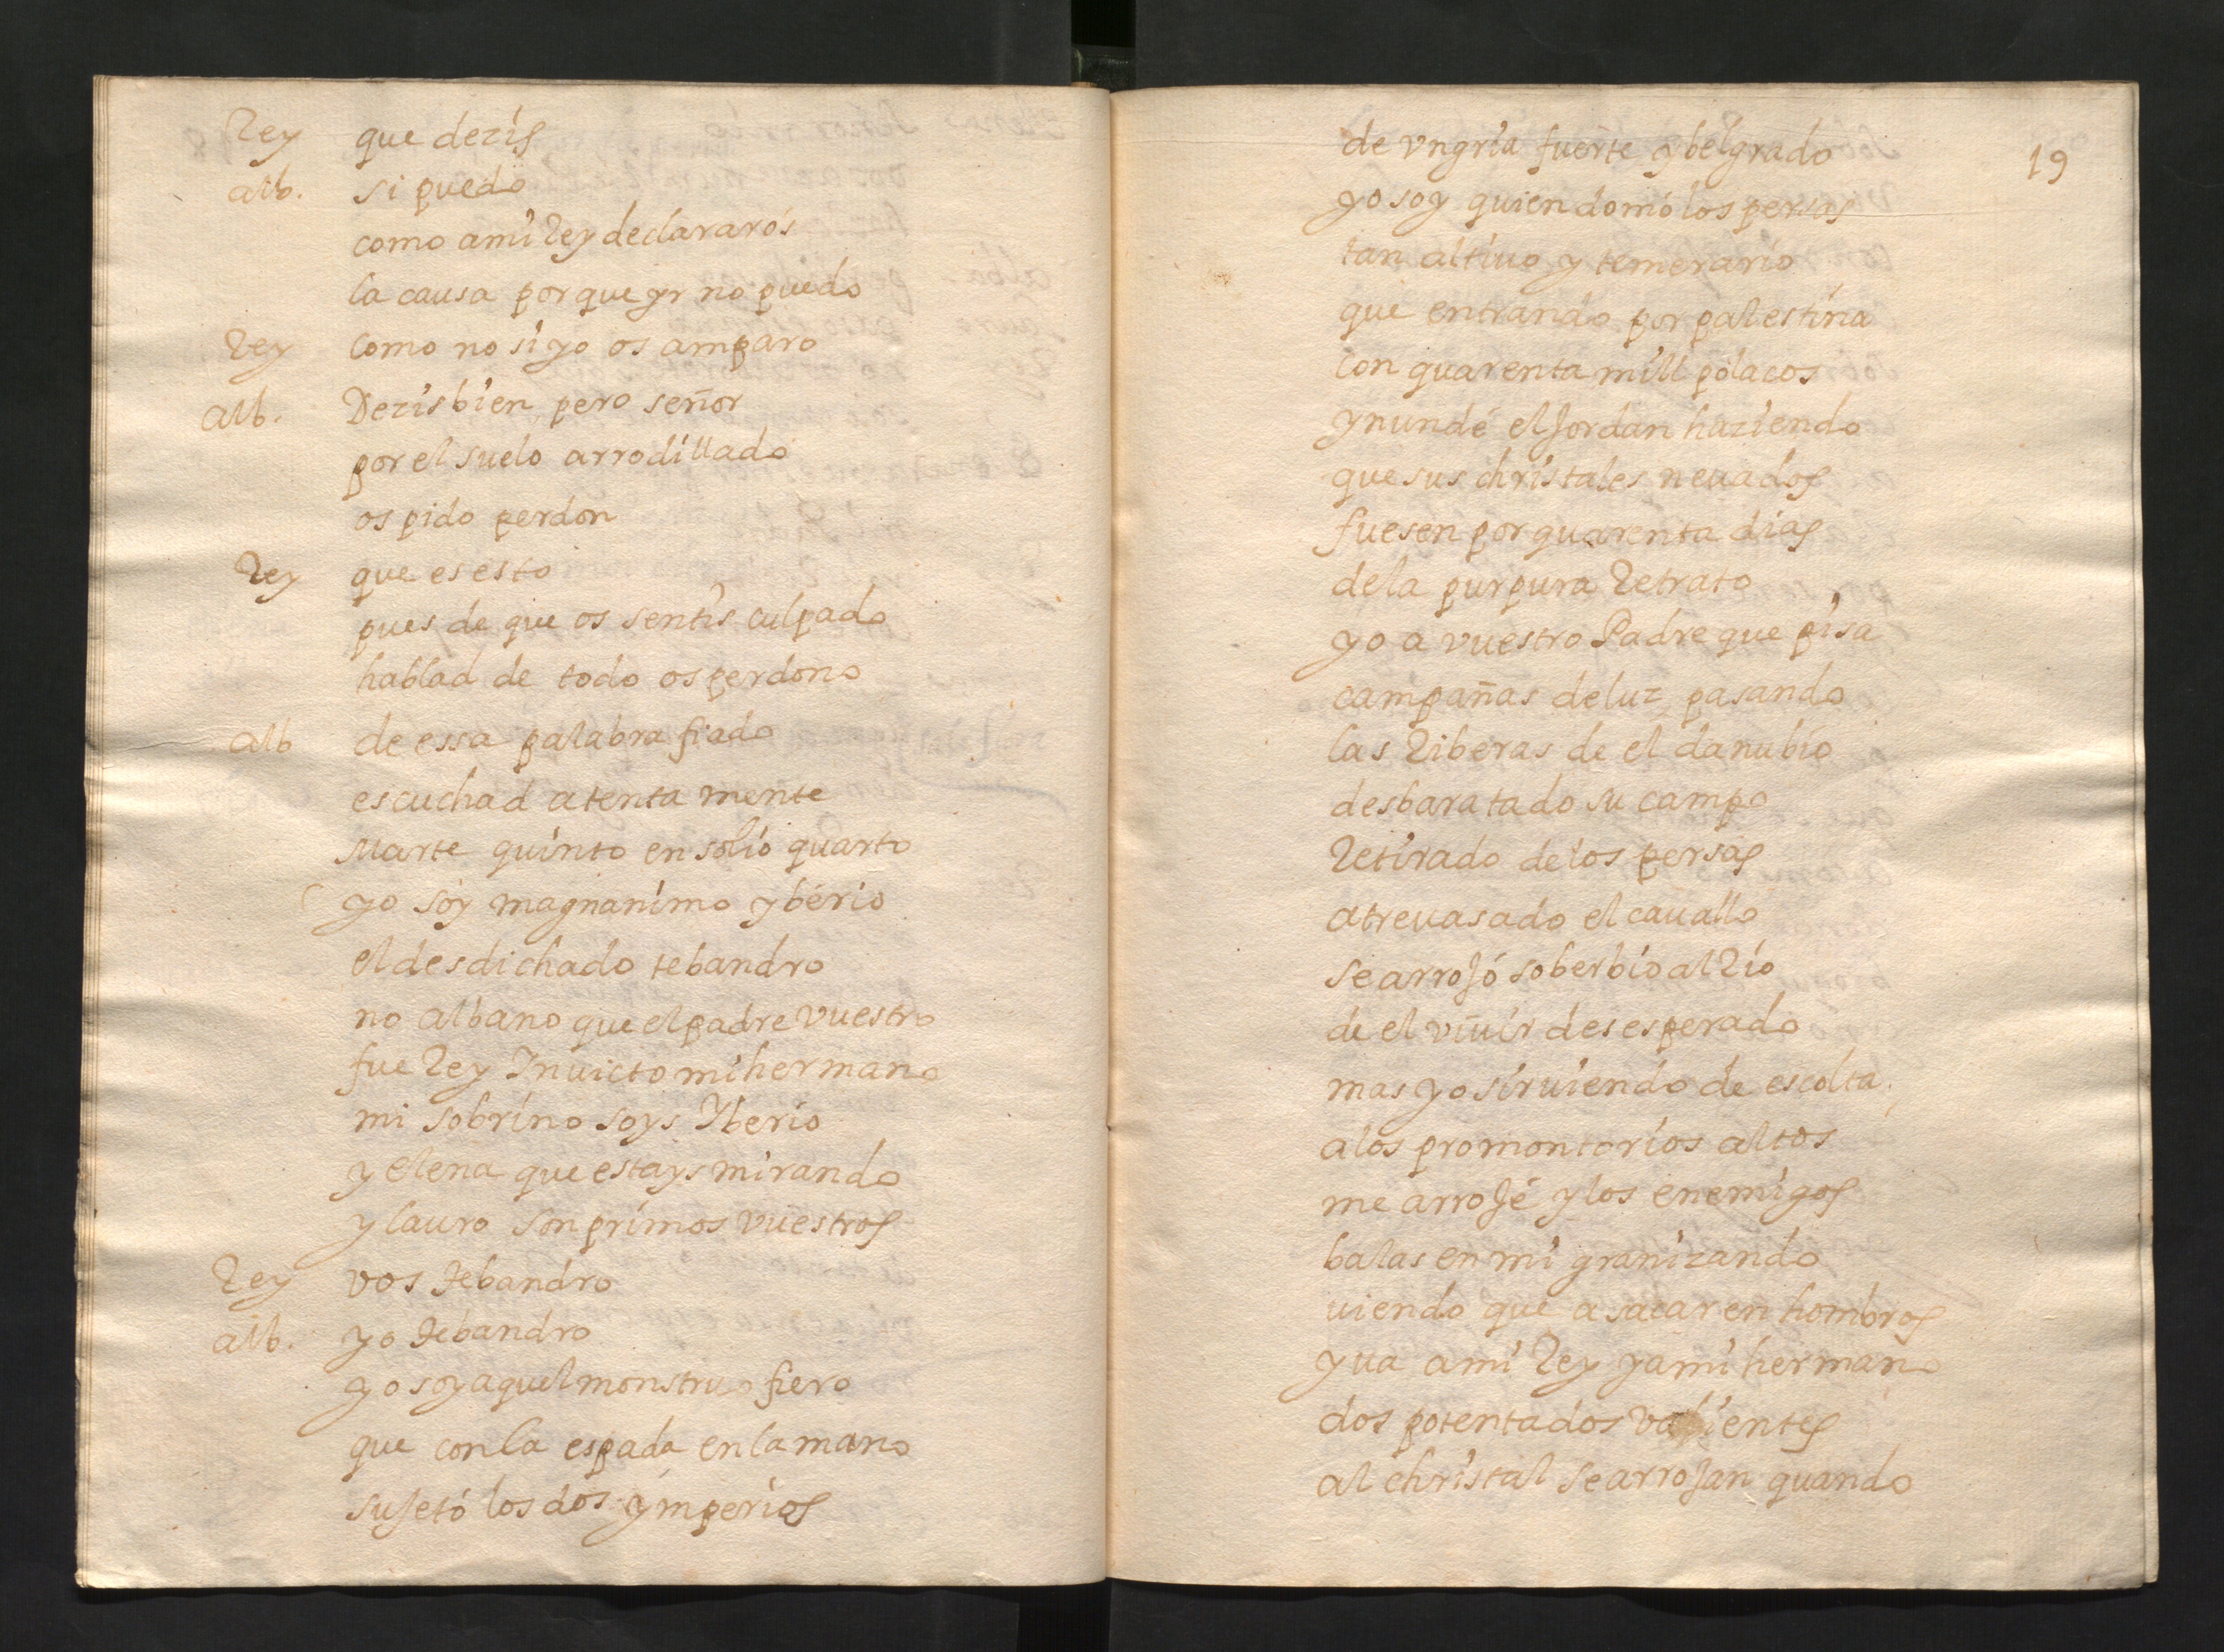 Rey que dezis
alb. si puedo
como a mi Rey declararos
la causa porque yr no puedo
Rey como no si yo os amparo
alb. Dezis bien pero señor
por el suelo arrodillado
os pido perdon
Rey que es esto
pues de que os sentis culpado
hablad de todo os perdono
alb de essa palabra fiado
escuchad atenta mente
Marte quinto en solio quarto
yo soy magnanimo yberio
el desdichado tebandro
no albano que el padre vuestro
fue Rey Inuicto mi hermano
mi sobrino soys Yberio
y elena que estays mirando
y lauro son primos vuestros
Rey vos tebandro
alb. yo tebandro
yo soy aquel monstruo fiero
que con la espada en la mano
sujetó los dos ymperios
19
de vngria fuerte y belgrado
yo soy quien domó los persas
tan altiuo y temerario
que entrando por palestina
con quarenta mill polacos
ynundé el Jordan haziendo
que sus christales neuados
fuesen por quarenta dias
de la purpura Retrato
yo a vuestro Padre que pisa
campañas de luz pasando
las Riberas de el danubio
desbaratado su campo
Retirado de los persas
atreuasado el cauallo
se arrojó soberbio al Rio
de el viuir desesperado
mas yo siruiendo de escolta
a los promontorios altos
me arrojé y los enemigos
balas en mi granizando
uiendo que a sacar en hombros
yua a mi Rey y a mi hermano
dos potentados valientes
al christal se arrojan quando